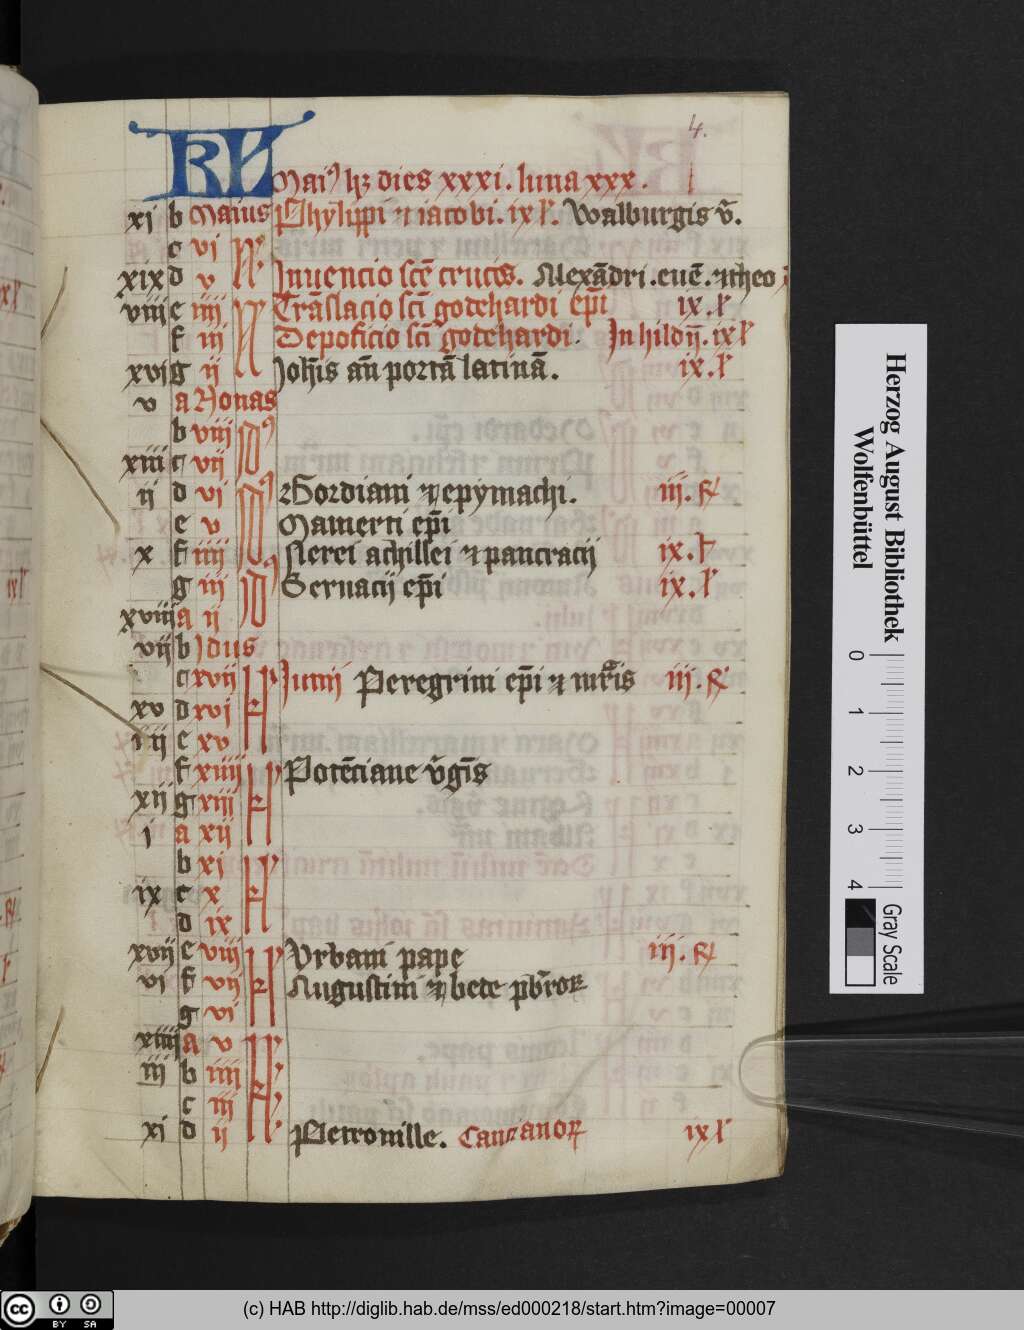 4.
KL Mai⁹ hꝫ dies xxxi. luna xxx.
xi b Maius Phylippi ⁊ iacobi. ix l'. Walburgis v̄.
c vi N̄
xix d v Inuencio sc̄e crucis. Alexādri. euē. ⁊ theo
viii e iiii N̄ Trāslacio sc̄i gotehardi ep̄i ix. l'
f iii Deposicio sc̄i gotehardi. In hildn̄. ix l'
xvi g ii Joh̄is an̄ portā latinā. ix. l'
v a Nonas
b viii Id⁹
xiii c vii
ii d vi Id⁹ Gordiani ⁊ epymachi. iii. R
e v Mamerti ep̄i
x f iiii Nerei achillei ⁊ pancracij ix. l'
g iii Id⁹ Seruacij ep̄i ix. l'
xviii a ii
vii b Idus
c xvii kl' Junij Peregrini ep̄i ⁊ mr̄is iii. R
xv d xvi
iiii e xv
f xiiii kl' Potēciane v̄gīs
xii g xiii
i a xii
b xi kl'
ix c x
d ix
xvii e viii kl' Vrbani pape iii. R
vi f vii Augustini ⁊ bede pb̄roꝝ
g vi
xiiii a v kl'
iii b iiii
c iii
xi d ii Petronille. Cancianoꝝ ix l'
Herzog August Bibliothek
Wolfenbüttel
0 1 2 3 4
Gray Scale
cc BY SA
(c) HAB http://diglib.hab.de/mss/ed000218/start.htm?image=00007